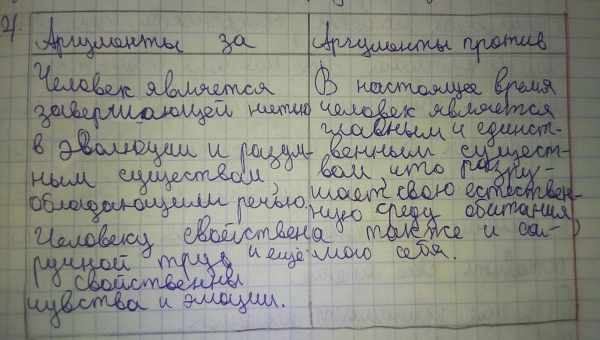 4.
Аргументы за
Человек является
завершающей нитью
в эволюции и разум-
ным существом,
обладающим речью.
Человеку свойствена
ручной труд и ещё
свойственны
чувства и эмоции.
Аргументы против
В настоящее время
человек является
главным и единст-
венным сущест-
вом что разру-
шает свою естествен-
ную среду обитания,
а также и са-
мого себя.